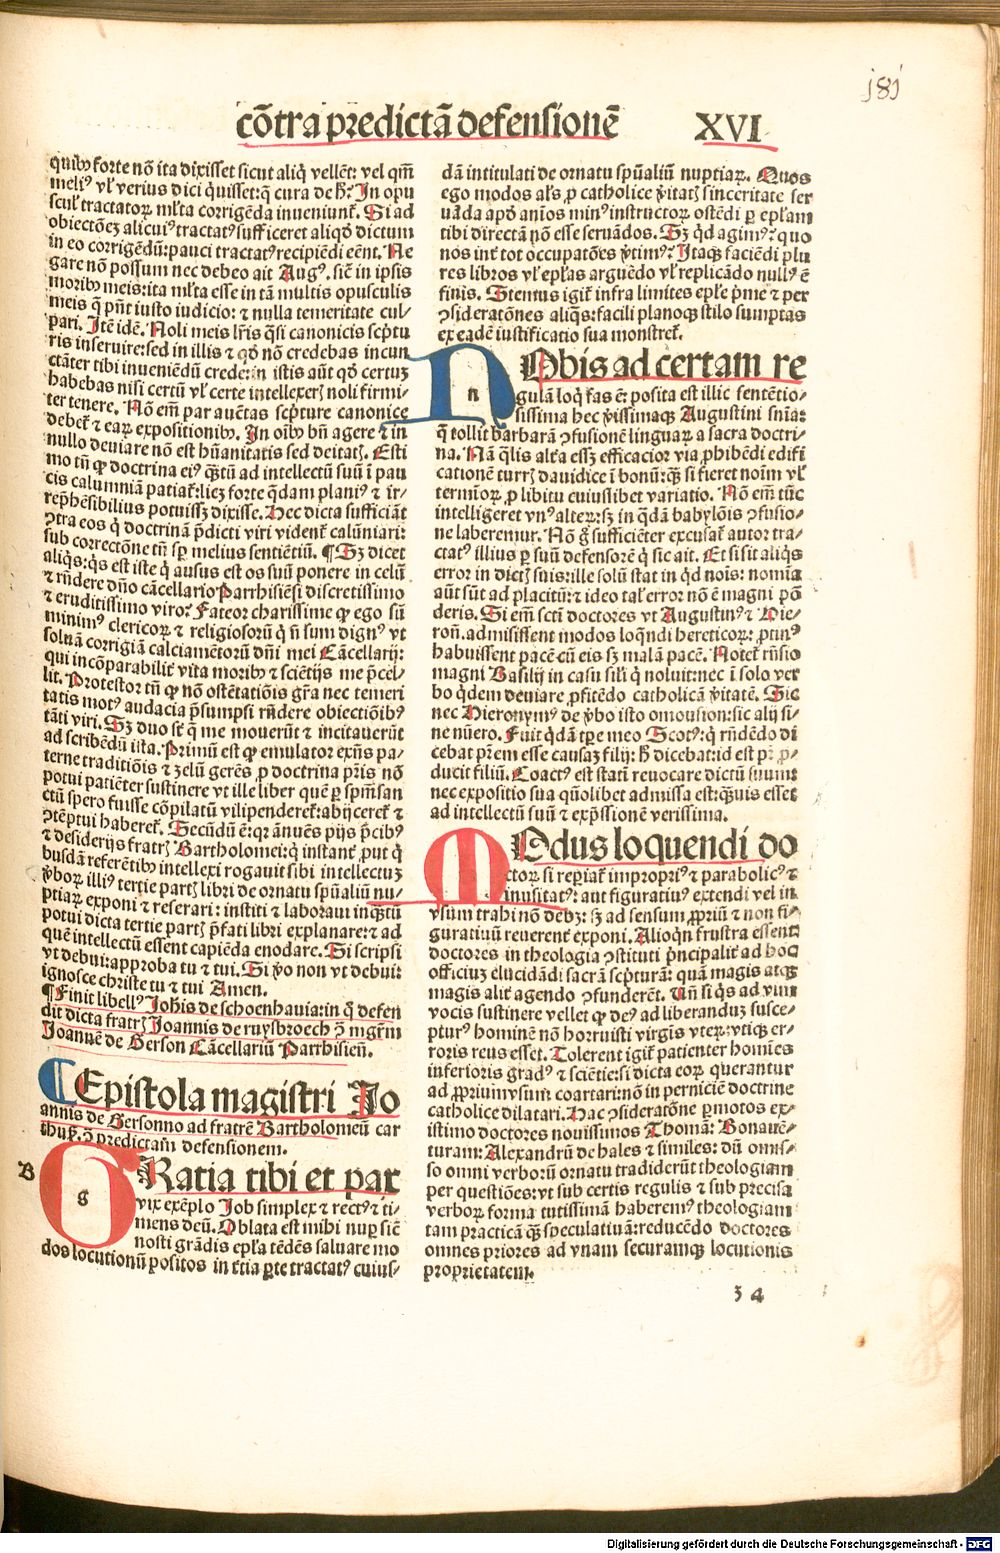 181
cōtra predictā defensionē XVI
quibꝰ forte nō ita dixisset sicut aliqͥ vellēt: vel qm̄
meliꝰ vl̓ verius dici qͥuisset: q̄ cura de hͦ? In opu
scul̓ tractatoꝝ ml̓ta corrigēda inueniunt᷑. Si ad
obiectōeꝫ alicuiꝰ tractatꝰ sufficeret aliqd̓ dictum
in eo corrigēdū: pauci tractatꝰ recipiēdi eēnt. Ne
gare nō possum nec debeo ait Augꝰ. sic̄ in ipsis
moribꝰ meis: ita ml̓ta esse in tā multis opusculis
meis q̄ pn̄t iusto iudicio: ⁊ nulla temeritate cul-
pari. Itē idē. Noli meis lr̄is q̄si canonicis scp̄tu
ris inseruire: sed in illis ⁊ qd̓ nō credebas incun
ctāter tibi inueniēdū crede: in istis aūt qd̓ certuꝫ
habebas nisi certū vl̓ certe intellexerꝫ noli firmi-
ter tenere. Nō em̄ par auc̄tas scp̄ture canonice
debet᷑ ⁊ eaꝝ expositionibꝰ. In oībꝰ bn̄ agere ⁊ in
nullo deuiare nō est hūanitatis sed deitatꝫ. Esti
mo tn̄ ꝙ doctrina eiꝰ q̄ꝫtū ad intellectū suū ī pau
cis calumniā patiat᷑: licꝫ forte q̄dam planiꝰ ⁊ ir-
rep̄hēsibilius potuissꝫ dixisse. Hec dicta sufficiāt
ꝯtra eos qͥ doctrinā p̄dicti viri vident᷑ calūniari:
sub correctōne tn̄ sp̄ melius sentiētiū. ¶ Sꝫ dicet
aliqͥs: qͥs est iste qͥ ausus est os suū ponere in celū
⁊ rn̄dere dn̄o cācellario Parrhisiēsi discretissimo
⁊ eruditissimo viro? Fateor charissime ꝙ ego sū
minimꝰ clericoꝝ ⁊ religiosorū qͥ nͦ sum dignꝰ vt
soluā corrigiā calciamētorū dn̄i mei Cācellarij:
qui incōparabilit᷑ vita moribꝰ ⁊ sciētijs me p̄cel-
lit. Protestor tn̄ ꝙ nō ostētatiōis gr̄a nec temeri
tatis motꝰ audacia p̄sumpsi rn̄dere obiectiōibꝰ
tāti viri. Sꝫ duo st̄ q̄ me mouerūt ⁊ incitauerūt
ad scribēdū ista. Primū est ꝙ emulator exn̄s pa-
terne traditiōis ⁊ zelū gerēs ꝓ doctrina pr̄is nō
potui patiēter sustinere vt ille liber quē ꝑ spm̄ san
ctū spero fuisse cōpilatū vilipenderet᷑: abijceret᷑ ⁊
ꝯtēptui haberet᷑. Secūdū ē: qꝛ ānuēs pijs p̄cibꝰ
⁊ desiderijs fratrꝫ Bartholomei: qͥ instant᷑ ꝓut qͥ
busdā referētibꝰ intellexi rogauit sibi intellectuꝫ
v̓boꝝ illiꝰ tertie partꝫ libri de ornatu spūaliū nu-
ptiaꝝ exponi ⁊ reserari: institi ⁊ laboraui inq̄ꝫtū
potui dicta tertie partꝫ p̄fati libri explanare: ⁊ ad
quē intellectū essent capiēda enodare. Si scripsi
vt debui: approba tu ⁊ tui. Si v̓o non vt debui:
ignosce christe tu ⁊ tui Amen.
¶ Finit libellꝰ Johīs de schoenhauia: in qͦ defen
dit dicta fratrꝫ Joannis de ruysbroech ꝯ̄ mgr̄m
Joannē de Gerson Cācellariū Parrhisien̄.
¶ Epistola magistri Jo
annis de Gersonno ad fratrē Bartholomeū car
thuꝭ. ꝯ̄ predictam defensionem.
B
g
GRatia tibi et pax
vix exēplo Job simplex ⁊ rectꝰ ⁊ ti-
mens deū. Oblata est mihi nuꝑ sic̄
nosti grādis ep̄l̓a tēdēs saluare mo
dos locutionū positos in t̓tia ꝑte tractatꝰ cuius-
dā intitulati de ornatu spūaliū nuptiaꝝ. Quos
ego modos al̓s ꝓ catholice v̓itatꝫ sinceritate ser
uāda apd̓ anīos minꝰ instructoꝝ ostēdi ꝑ epl̓am
tibi directā nō esse seruādos. Sꝫ qd̓ agimꝰ? quo
nos int᷑ tot occupatōes v̓timꝰ? Itaqꝫ faciēdi plu
res libros vl̓ epl̓as arguēdo vl̓ replicādo nullꝰ ē
finis. Stemus igit᷑ infra limites epl̓e p̄me ⁊ per
ꝯsideratōnes aliq̄s: facili planoqꝫ stilo sumptas
ex eadē iustificatio sua monstret᷑.
n
NObis ad certam re
gulā loq̄ fas ē: posita est illic sentētio-
sissima hec v̓issimaqꝫ Augustini sn̄ia:
q̄ tollit barbarā ꝯfusionē linguaꝝ a sacra doctri-
na. Nā q̄lis alt̓a essꝫ efficacior via ꝓhibēdi edifi
cationē turrꝫ dauidice ī bonū: q̄ꝫ si fieret noīm vl̓
termīoꝝ ꝓ libitu cuiuslibet variatio. Nō em̄ tūc
intelligeret vnꝰ alteꝝ: sꝫ in q̄dā babylōis ꝯfusio-
ne laboremur. Nō gͦ sufficiēter excusat᷑ autor tra-
ctatꝰ illius ꝑ suū defensorē qͥ sic ait. Et si sit aliqͥs
error in dictꝫ suis: ille solū stat in qd̓ noīs: nomīa
aūt sūt ad placitū: ⁊ ideo tal̓ error nō ē magni pō
deris. Si em̄ sctī doctores vt Augustinꝰ ⁊ Hie-
ron̄. admisissent modos loqn̄di hereticoꝝ: ꝓtinꝰ
habuissent pacē cū eis sꝫ malā pacē. Notet᷑ rn̄sio
magni Basilij in casu sil̓i qͥ noluit: nec ī solo ver
bo qͥdem deuiare ꝓfitēdo catholicā v̓itatē. Sic
nec Hieronymꝰ de v̓bo isto omousion: sic alij si-
ne nūero. Fuit qͥdā tꝑe meo Scotꝰ: qͥ rn̄dēdo di
cebat pr̄em esse causaꝫ filij: hͦ dicebat: id est pr̄ ꝓ-
ducit filiū. Coactꝰ est statī reuocare dictū suum:
nec expositio sua qūolibet admissa est: q̄ꝫuis esset
ad intellectū suū ⁊ exp̄ssionē verissima.
MOdus loquendi do
ctoꝝ si reꝑiat᷑ impropriꝰ ⁊ parabolicꝰ ⁊
inusitatꝰ: aut figuratiuꝰ extendi vel in
vsum trahi nō debꝫ: sꝫ ad sensum ꝓpriū ⁊ non fi-
guratiuū reuerent᷑ exponi. Alioqͥn frustra essent
doctores in theologia ꝯstituti p̄ncipalit᷑ ad hoc
officiuꝫ elucidādi sacrā scp̄turā: quā magis atqꝫ
magis alit᷑ agendo ꝯfunderēt. Un̄ si qͥs ad vim
vocis sustinere vellet ꝙ deꝰ ad liberanduꝫ susce-
pturꝰ hominē nō horruisti virgīs vteꝝ: vtiqꝫ er-
roris reus esset. Tolerent igit᷑ patienter homīes
inferioris gradꝰ ⁊ sciētie: si dicta eoꝝ querantur
ad ꝓprium vsum coartari: nō in perniciē doctrine
catholice dilatari. Hac ꝯsideratōne ꝑmotos ex-
istimo doctores nouissimos Thomā: Bonauē-
turam: Alexandrū de hales ⁊ similes: dū omis-
so omni verborū ornatu tradiderūt theologiam
per questiōes: vt sub certis regulis ⁊ sub precisa
verboꝝ forma tutissimā haberemꝰ theologiam
tam practicā q̄ꝫ speculatiuā: reducēdo doctores
omnes priores ad vnam securamqꝫ locutionis
proprietatem.
3 4
Digitalisierung gefördert durch die Deutsche Forschungsgemeinschaft - DFG